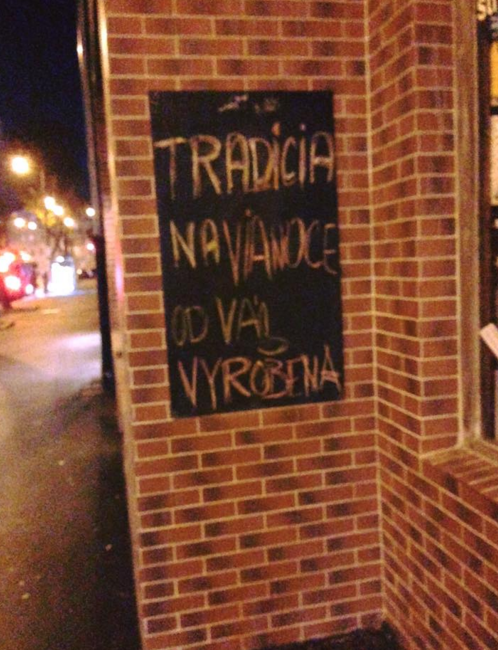 TRADÍCIA
NA VIANOCE
OD VÁ
VYROBENÁ